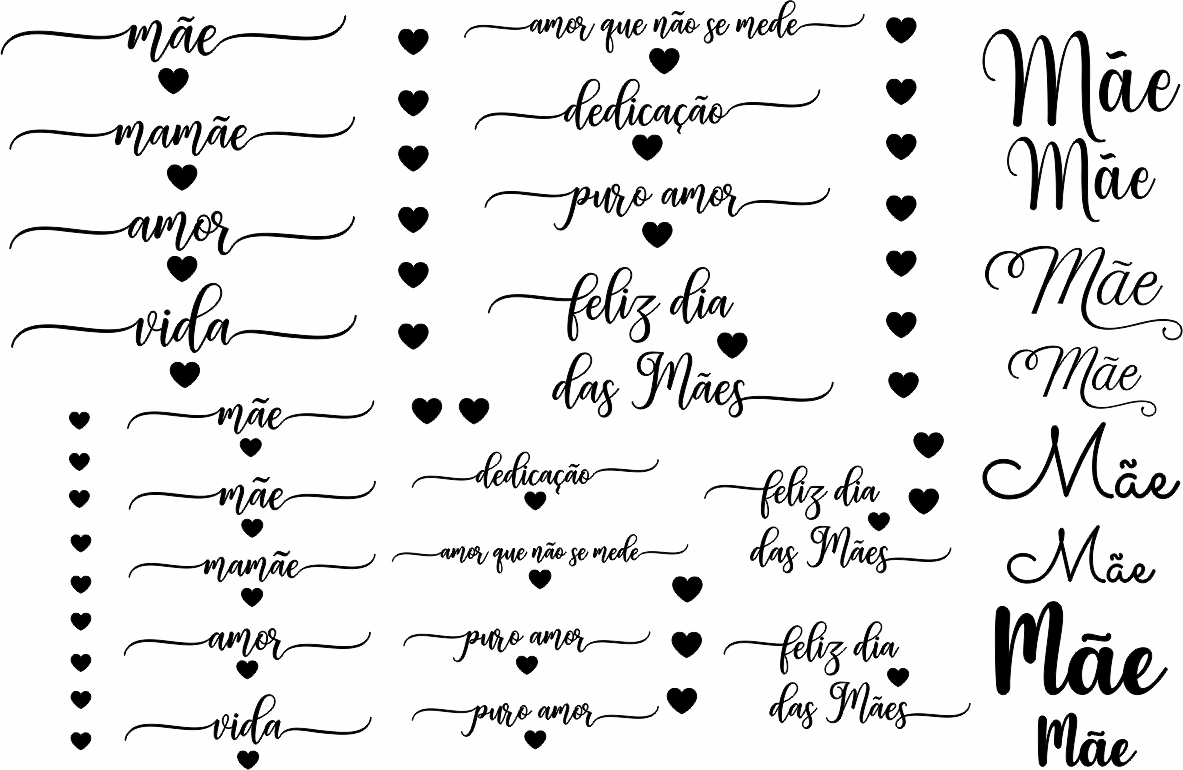 mãe
mamãe
amor
vida
mãe
mãe
mamãe
amor
vida
amor que não se mede
dedicação
puro amor
feliz dia
das Mães
dedicação
amor que não se mede
puro amor
puro amor
feliz dia
das Mães
feliz dia
das Mães
Mãe
Mãe
Mãe
Mãe
Mãe
Mãe
Mãe
Mãe